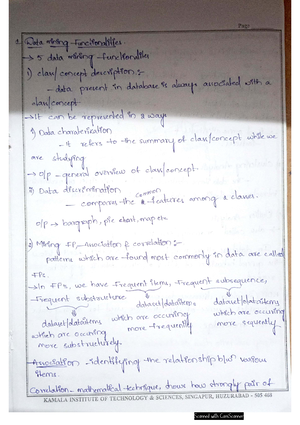 Page
1. Data mining Functionalities
→ 5 data mining - functionalities
1) class/concept description :-
- data present in database is always associated with a
class/concept
→ It can be represented in 2 ways
1) Data charaterisation
- it refers to the summary of class/concept while we
are studying
→ o/p - general overview of class/concept.
2) Data discrimination
common
- compares the features among 2 classes.
o/p → bargraph, pie chart, map etc
2) Mining FP, Association & correlation :-
patterns which are found most commonly in data are called
FPs.
→ In FPs, we have frequent items, frequent subsequence,
frequent substructure
dataset/dataitems dataset/dataitems
dataset/dataitems which are occuring which are occuring
which are occuring more frequently more
more substructurely.
Association - identifying the relationship b/w various
items.
Correlation - mathematical technique, shows how strongly pair of
KAMALA INSTITUTE OF TECHNOLOGY & SCIENCES, SINGAPUR, HUZURABAD - 505 468
Scanned with CamScanner